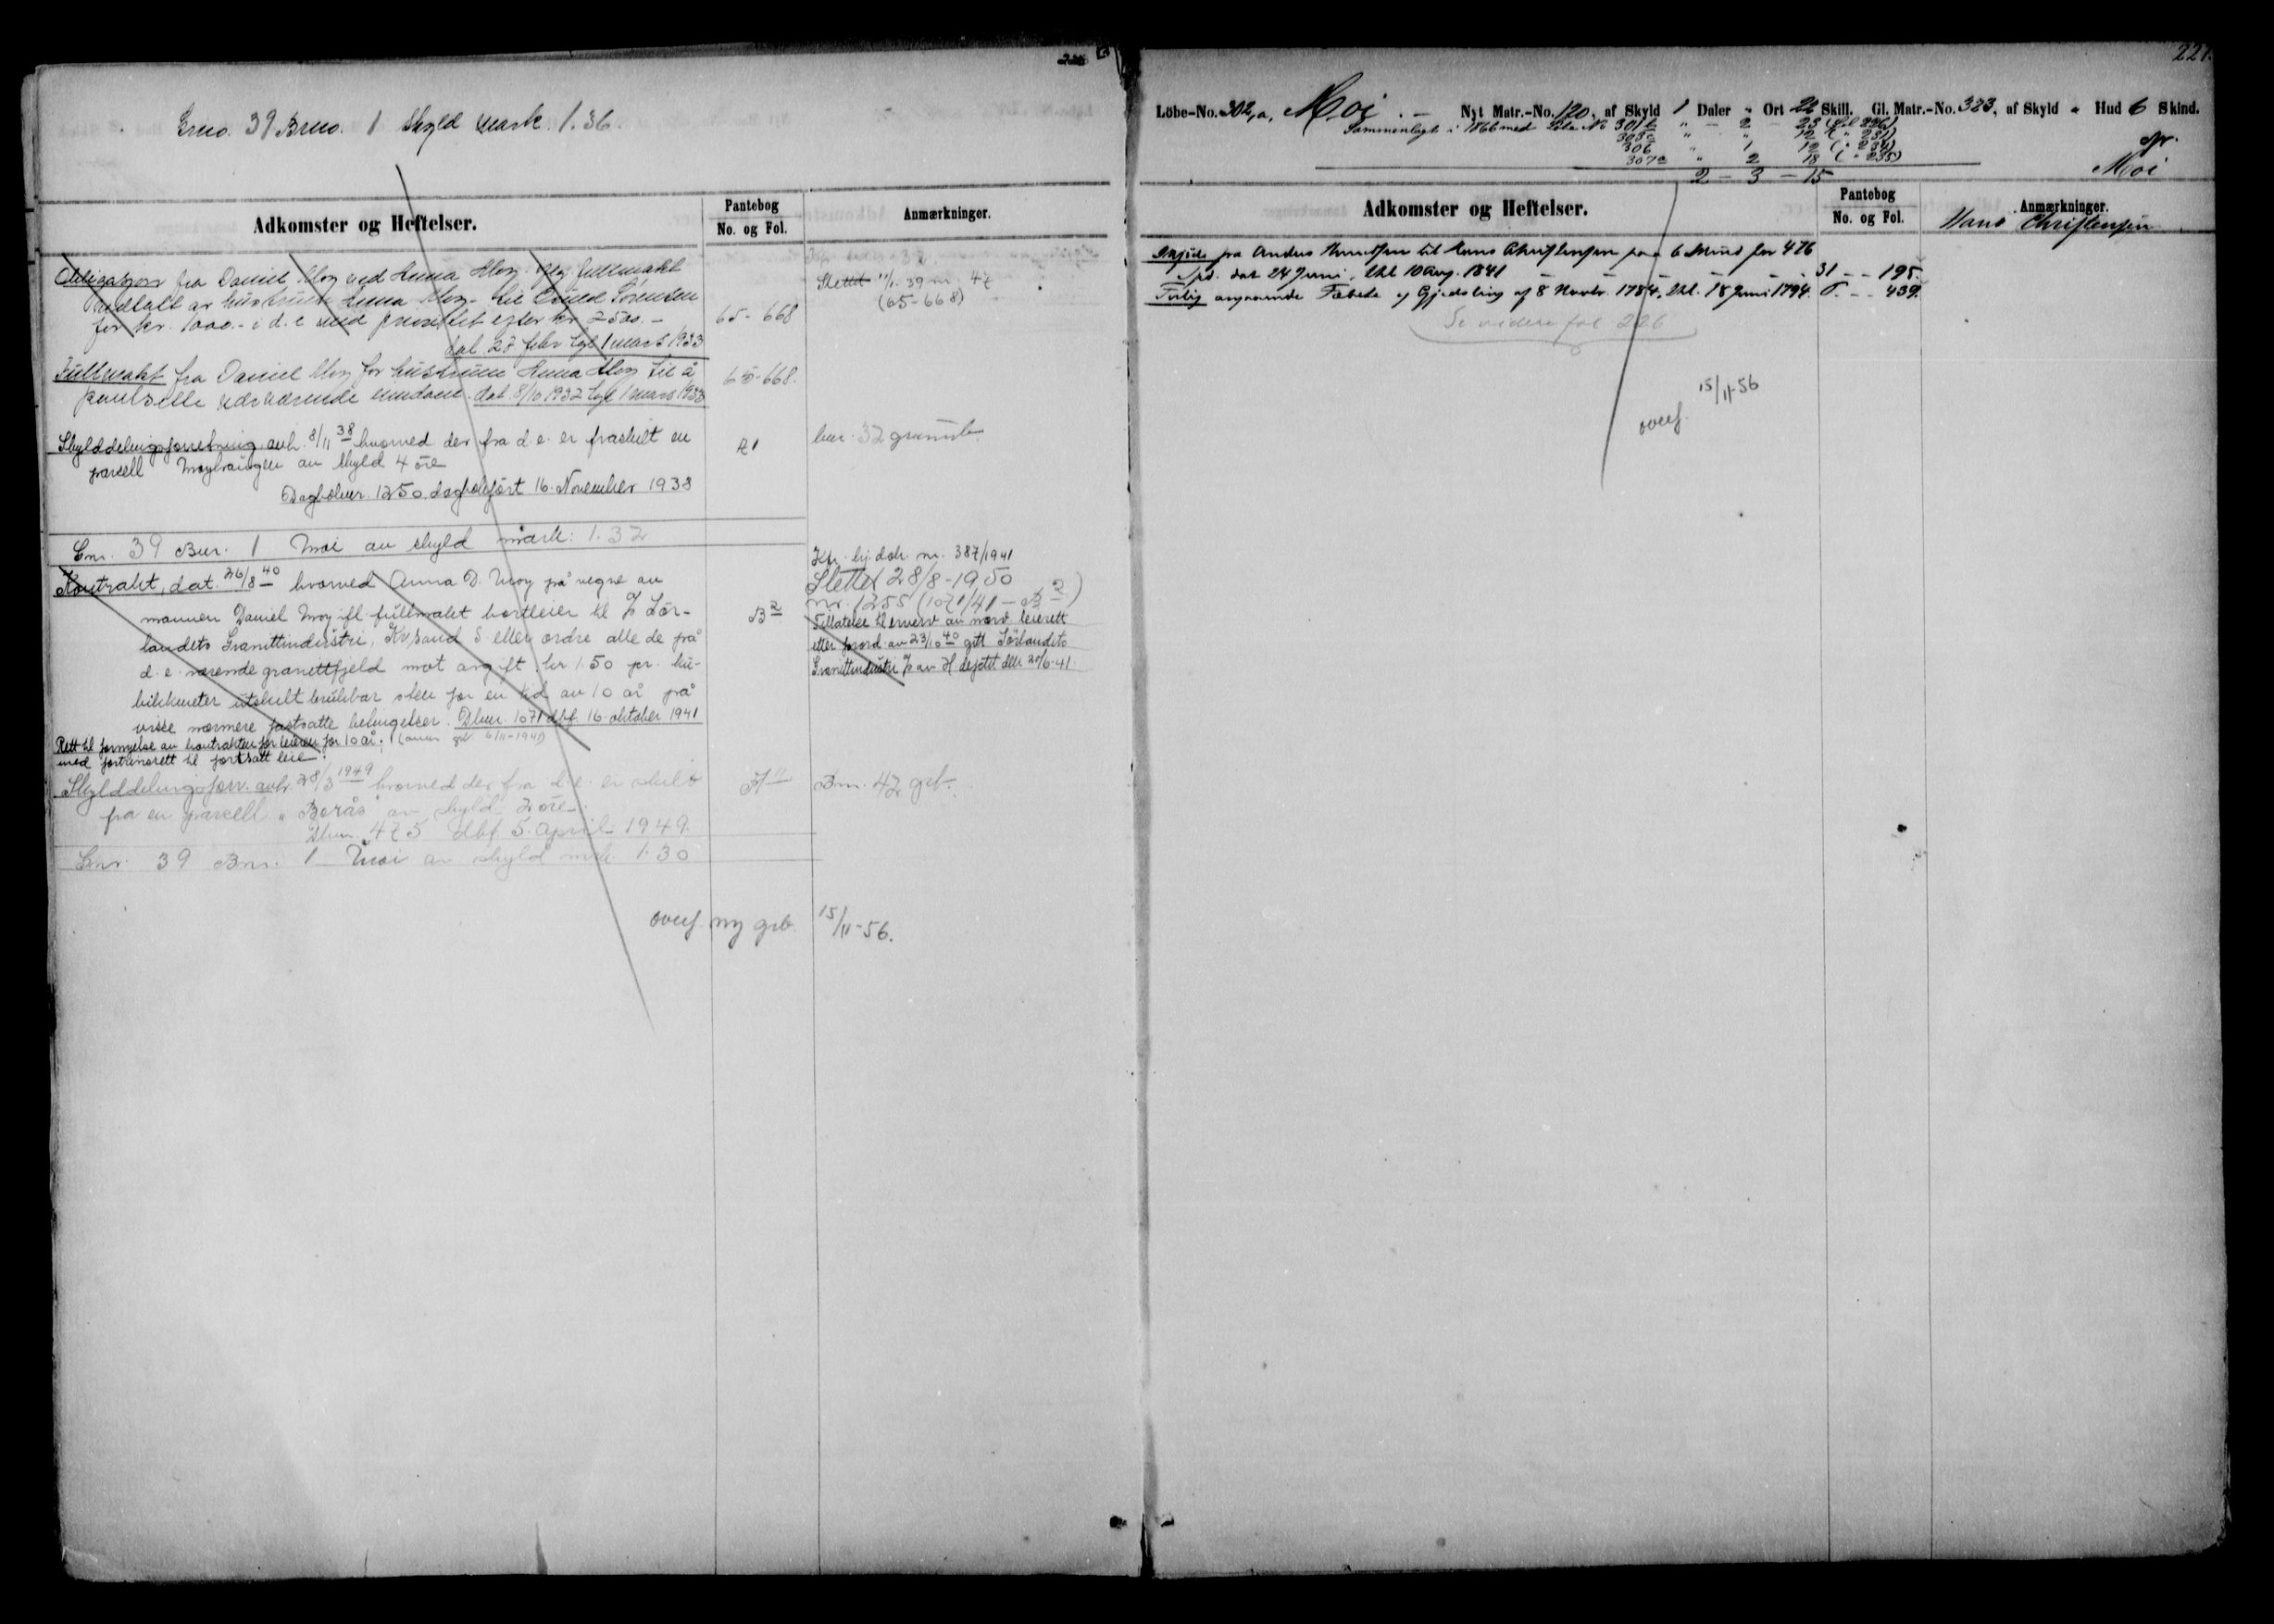 Grno. 39 Brno. 1 Skyld mark 1.36.
Adkomster og Heftelser.
Pantebog
No. og Fol.
Anmærkninger.
Obligasjon fra Daniel Moy ved Anna Moy iflg. fullmakt
utstedt av hustruen Anna Moy til Sørensen
for kr. 1000.- i d. e. med prioritet efter kr. 2500.-
dat. 27 febr. tgl. 1 mars 1933
65-668
Slettet 11/1. 39 nr. 47
(65-668)
Fullmakt fra Daniel Moy for hustruen Anna Moy til å
pantsette nærværende eiendom. dat. 8/10 1932 tgl. 1 mars 1933
65-668.
Skylddelingsforretning avh. 8/11 38 hvorved der fra d. e. er fraskilt en
parsell av skyld 4 öre
Dagboknr. 1250. dagbokfört 16. November 1938
21
bnr. 32 grunnb.
Gnr. 39 Bnr. 1 Moi av skyld mark: 1.32
Kontrakt, dat. 26/8 40 hvorved Anna D. Moy på vegne av
mannen Daniel Moy ifl. fullmakt bortleier til Sör-
landets Granittindustri, Kr.sand S eller ordre alle de på
d. e. værende granittfjeld mot avgift kr 1.50 pr. ku-
bikkmeter utskilt brukbar sten for en tid av 10 år på
visse nærmere fastsatte betingelser. Dbnr. 1071 dbf. 16. oktober 1941
Rett til fornyelse av kontrakten for leieren for 10 år,
med fortrinsrett til fortsatt leie.
B 2
Kfr. hj. dok. nr. 387/1941
Slettet 28/8-1950
nr. 1255 (1071/41 - B 2)
Tillatelse til erverv av nævnte leierett
etter forord. av 23/10 40 gitt Sörlandets
Granittindustri av H. dep.tet den 20/6-41.
Skylddelingsforr. avh. 28/3 1949 hvorved der fra d. e. er skilt
fra en parsell "Borås" av skyld 2 öre.
Dbnr. 475 dbf 5. April 1949.
Bnr. 42 grb.
Gnr. 39 Bnr. 1 Moi av skyld mrk. 1.30
overf. ny grb. 15/11-56.
221.
Löbe-No. 302, a, Moi. - Nyt Matr.-No. 120, af Skyld 1 Daler " Ort 22 Skill. Gl. Matr.-No. 323, af Skyld " Hud 6 Skind.
Sammenlagt i 1866 med Löbe No 301 b " - 2 - 23 (fol 226)
303 c " " 12 (" 231)
306 " 1 12 (" 234)
307 a " 2 18 (" 235)
2 - 3 - 15
Moi
Adkomster og Heftelser.
Pantebog
No. og Fol.
Anmærkninger.
Hans Christensen
Skjöde fra Anders Knudsen til Hans Christensen paa 6 Skind for 476
Spd. dat 24 Juni, thl. 10 Aug. 1841 - - - - - - 31 - - 195.
Forlig angaaende Fæbede og Gjedsling af 8 Novbr. 1784, thl. 18 Juni 1794. - - 439.
Se videre fol 226
overf. 15/11-56